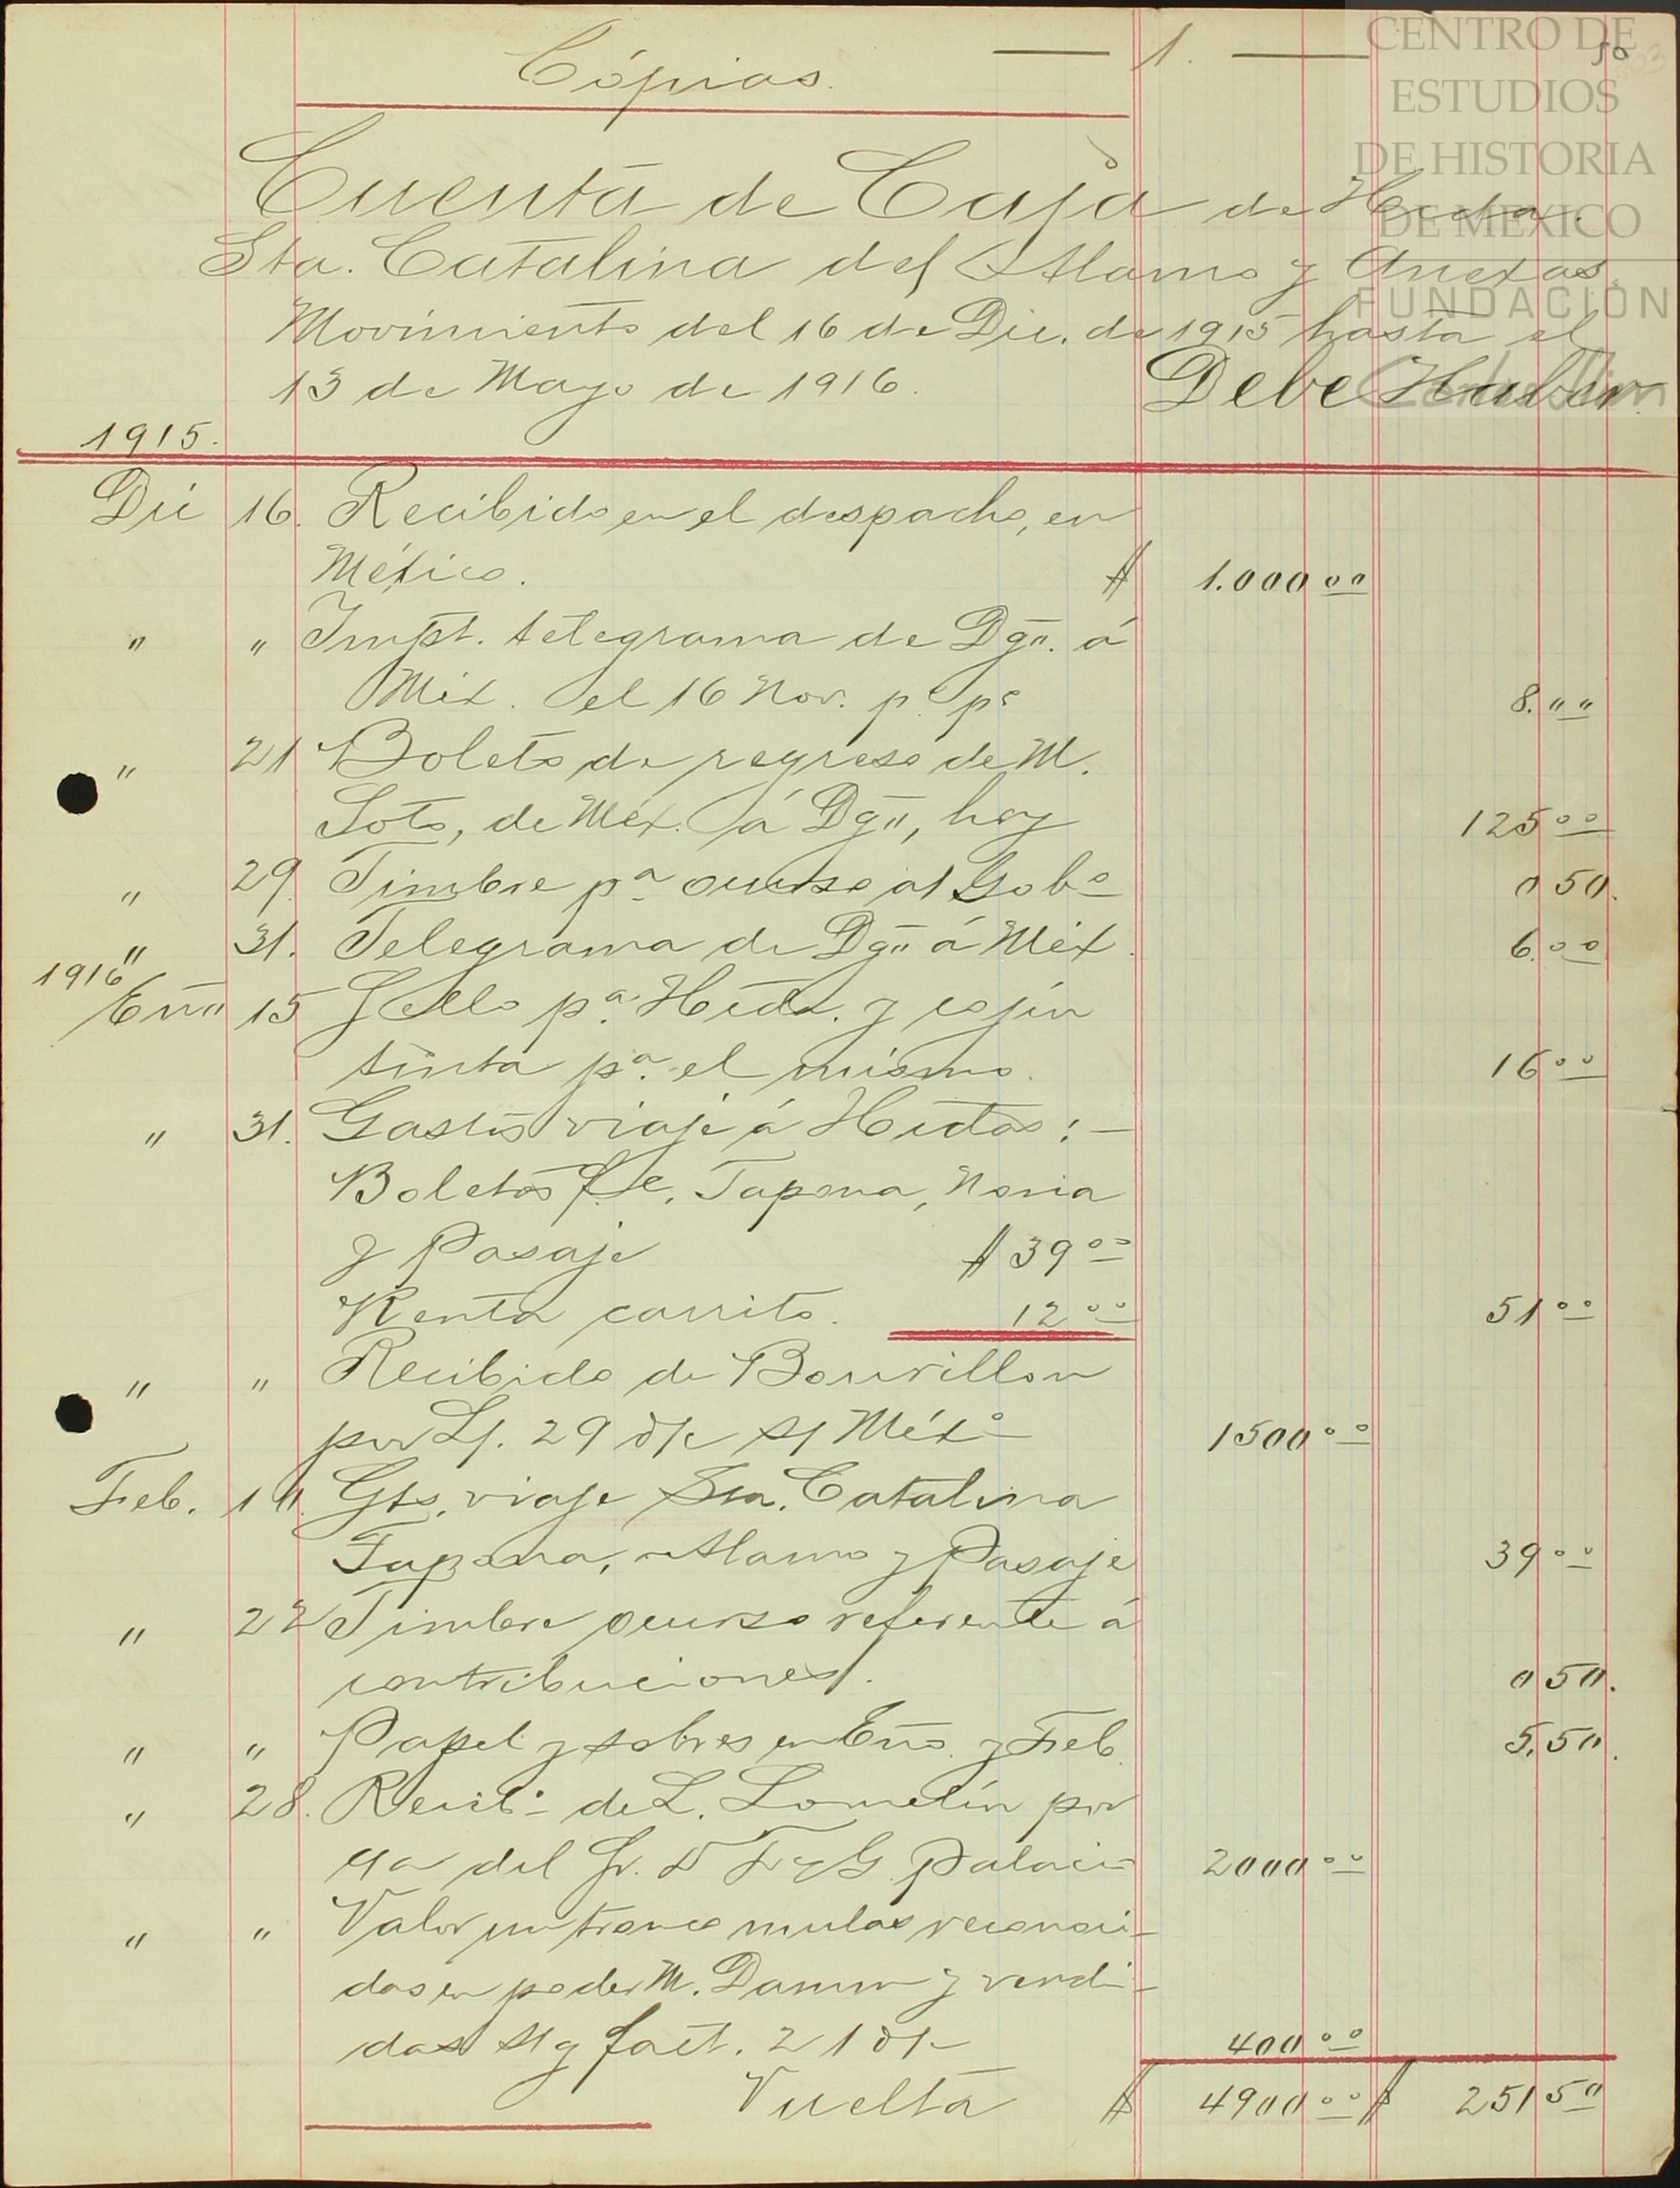 Cópias. — 1. — 50
Cuenta de Caja de Hcda.
Sta. Catalina del Alamo y Anexas.
Movimiento del 16 de Dic. de 1915 hasta el
13 de Mayo de 1916. Debe Haber
1915.
Dic 16. Recibido en el despacho, en
México. $ 1.000 00
" " Impt. telegrama de Dgo. á
Méx. el 16 Nov. p. pº 8. " "
" 21 Boleto de regreso de M.
Soto, de Méx. á Dgo, hoy 125 00
" 29 Timbre pª ocurso al Gobº 0 50.
" 31. Telegrama de Dgo á Méx. 6. 00
1916
Eno 15 Sello pª Hcda. y cojin
tinta pª el mismo. 16 00
" 31. Gastos viaje á Hcdas: —
Boletos f. c. Tapona, Noria
y Pasaje $ 39 00
Renta carrito. 12 00 51 00
" " Recibido de Bourillon
por L/. 29 d/c s/ Méxº 1500 00
Feb. 10. Gts. viaje Sta. Catalina
Tapona, Alamo y Pasaje 39 00
" 22 Timbre ocurso referente á
contribuciones. 0 50.
" " Papel y sobres en Eno. y Feb. 5.50.
" 28. Recibº de L. Lomelín por
c/a del Sr. D F. G. Palacio 2000 00
" " Valor un tronco mulas reconoci-
das en poder M. Damm y vendi-
das s/g fact. 21 d/c 400 00
Vuelta $ 4900 00 $ 251 50
CENTRO DE
ESTUDIOS
DE HISTORIA
DE MEXICO
FUNDACIÓN
Carlos Slim